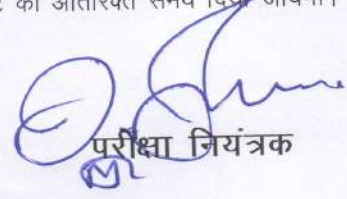 का अतिरिक्त समय दिया जायेगा।
परीक्षा नियंत्रक